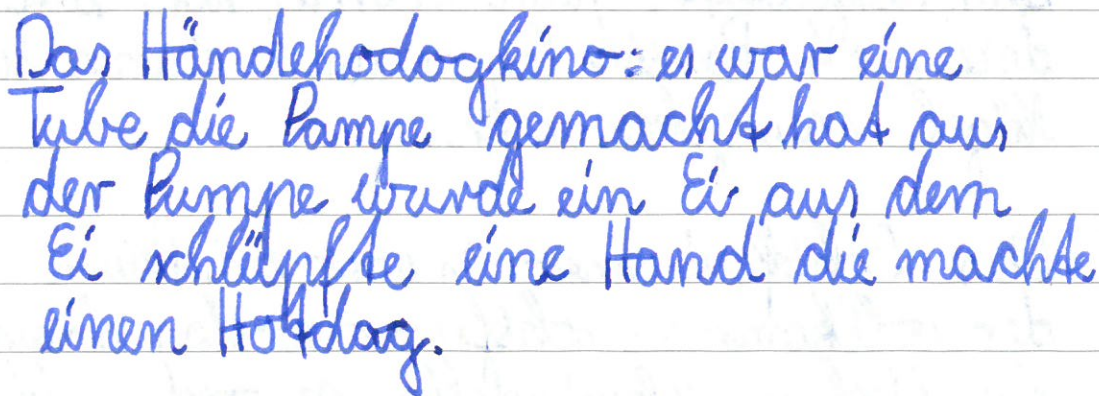 Das Händehodogkino: es war eine
Tube die Pampe gemacht hat aus
der Pumpe wurde ein Ei aus dem
Ei schlüpfte eine Hand die machte
einen Hotdag.